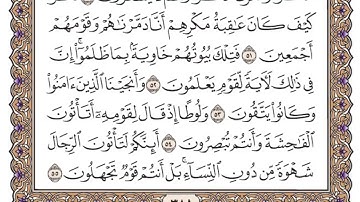 كَيْفَ كَانَ عَٰقِبَةُ مَكْرِهِمْ أَنَّا دَمَّرْنَٰهُمْ وَقَوْمَهُمْ
أَجْمَعِينَ ٥١ فَتِلْكَ بُيُوتُهُمْ خَاوِيَةَۢ بِمَا ظَلَمُوٓا۟ۗ إِنَّ
فِى ذَٰلِكَ لَءَايَةً لِّقَوْمٍ يَعْلَمُونَ ٥٢ وَأَنجَيْنَا ٱلَّذِينَ ءَامَنُوا۟
وَكَانُوا۟ يَتَّقُونَ ٥٣ وَلُوطًا إِذْ قَالَ لِقَوْمِهِۦٓ أَتَأْتُونَ
ٱلْفَٰحِشَةَ وَأَنتُمْ تُبْصِرُونَ ٥٤ أَئِنَّكُمْ لَتَأْتُونَ ٱلرِّجَالَ
شَهْوَةً مِّن دُونِ ٱلنِّسَآءِۚ بَلْ أَنتُمْ قَوْمٌ تَجْهَلُونَ ٥٥